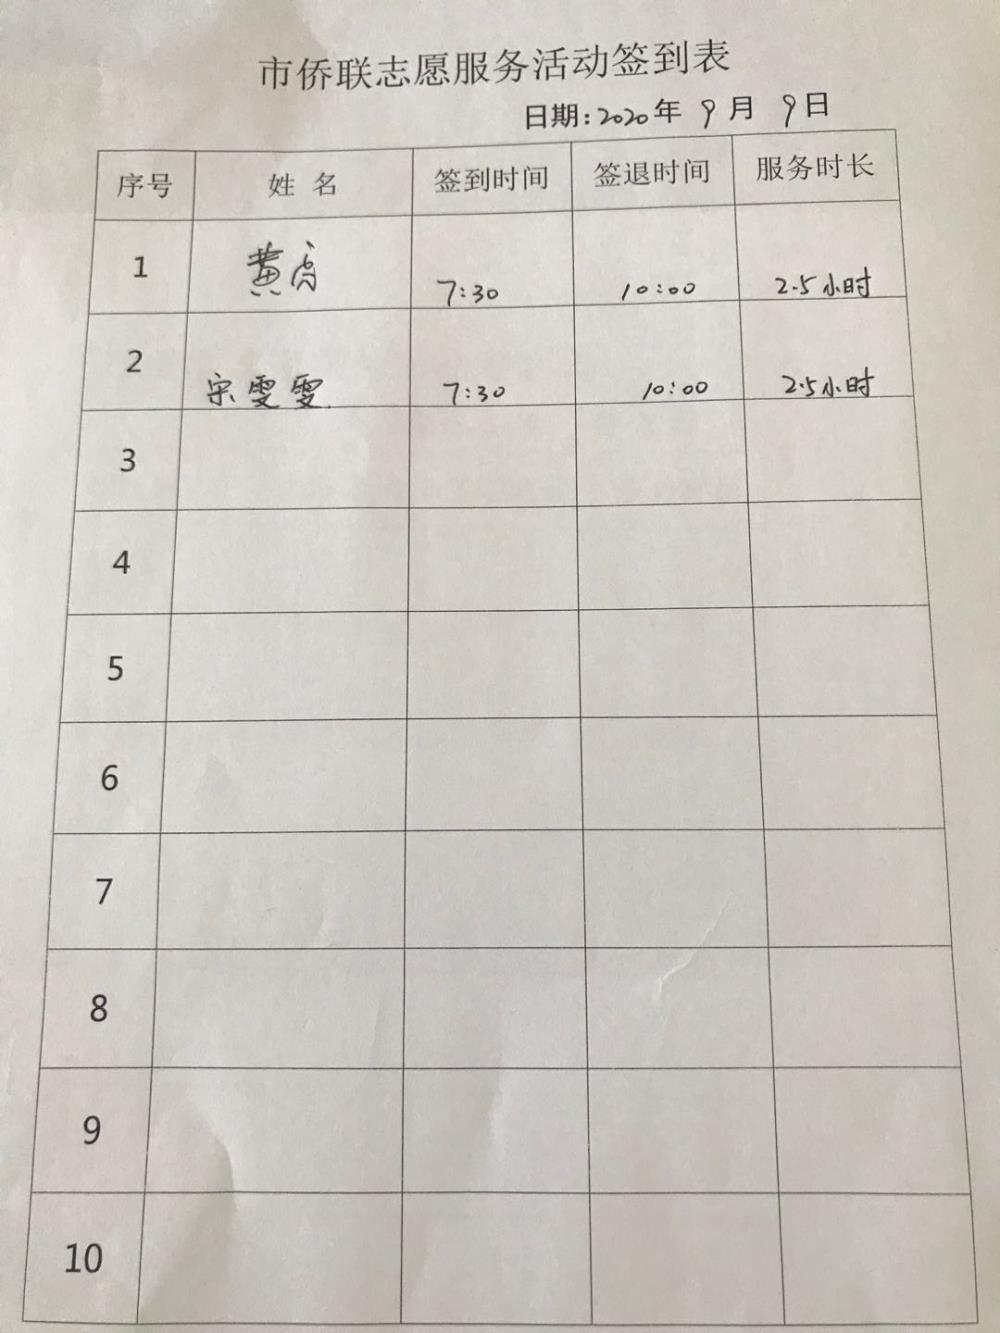 市侨联志愿服务活动签到表
日期:2020年 9月 9日
序号 姓 名 签到时间 签退时间 服务时长
1 黄 7:30 10:00 2.5小时
2 宋雯雯 7:30 10:00 2.5小时
3
4
5
6
7
8
9
10